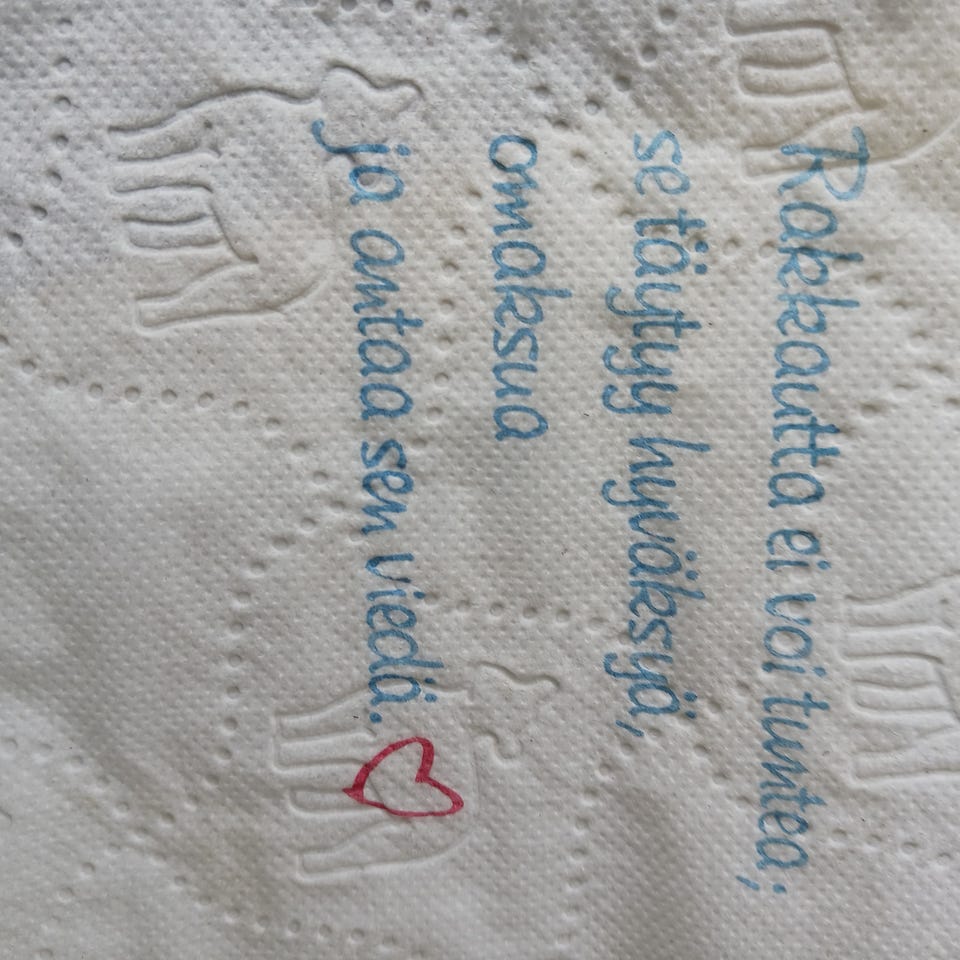 Rakkautta ei voi tuntea;
se täytyy hyväksyä,
omaksua
ja antaa sen viedä.